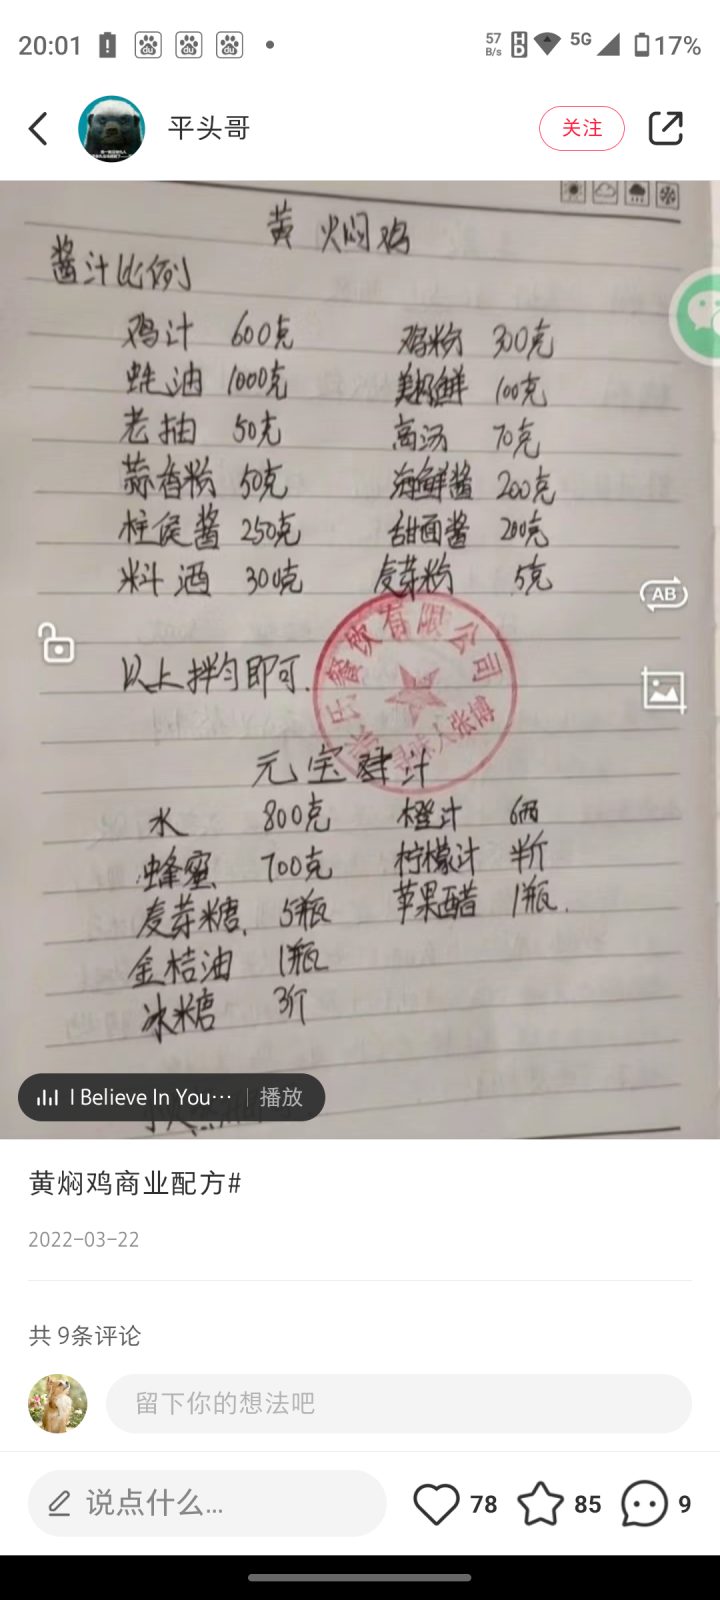 20:01
57 B/s HD 5G 17%
平头哥
关注
黄焖鸡
酱汁比例
鸡汁 600克 鸡粉 300克
蚝油 1000克 鲜 100克
老抽 50克 高汤 70克
蒜香粉 50克 海鲜酱 200克
柱侯酱 250克 甜面酱 200克
料酒 300克 麦芽粉 5克
餐饮有限公司
寻味人张博
以上拌匀即可.
元宝 汁
水 800克 橙汁 6两
蜂蜜 700克 柠檬汁 半斤
麦芽糖. 5瓶 苹果醋 1瓶.
金桔油 1瓶
冰糖 3斤
AB
I Believe In You… 播放
黄焖鸡商业配方#
2022-03-22
共 9条评论
留下你的想法吧
说点什么...
78 85 9